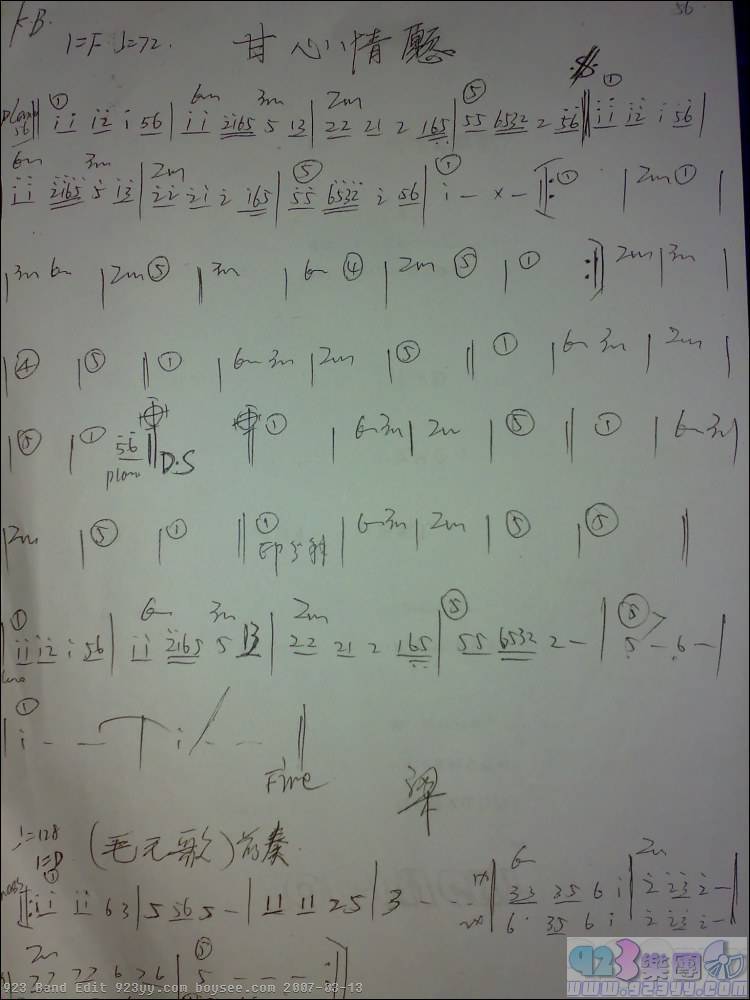 K.B. 56
1=F ♩=72. 甘心情愿
piano 56 ‖ ① i i i2 i 56 | 6m i i 2165 3m 5 13 | 2m 22 21 2 165 | ⑤ 55 6532 2 56 ‖ ① i i i2 i 56 |
6m i i 2165 3m 5 i3 | 2m 22 2i 2 165 | ⑤ 55 6532 2 56 | ① i – × – ‖: ① | 2m ① |
| 3m 6m | 2m ⑤ | 3m | 6m ④ | 2m ⑤ | ① :‖ 2m | 3m |
| ④ | ⑤ ‖ ① | 6m 3m | 2m | ⑤ ‖ ① | 6m 3m | 2m |
| ⑤ | ① 56 ‖ D.S ‖ ① | 6m 3m | 2m | ⑤ ‖ ① | 6m 3m |
piano
| 2m | ⑤ | ① ‖ ① | 6m 3m | 2m | ⑤ | ⑤ ‖
① i i i2 i 56 | 6m i i 2165 3m 5 13 | 2m 22 21 2 165 | ⑤ 55 6532 2 – | ⑤ 5 – 6 – |
| ① i – – | i – – ‖
Fine
♩=128 (毛元歌)前奏
1=D
‖: ① i i i i 6 3 | 5 56 5 – | 11 11 25 | 3 – – ‖ 6m 33 35 6 i | 2m 2 23 2 – |
6· 35 6 i 2 23 2 –
2m 22 22 6 26 | ⑤ 5 – – – :‖
923 Band Edit 923yy.com boysee.com 2007-03-13
923樂團
www.923yy.com